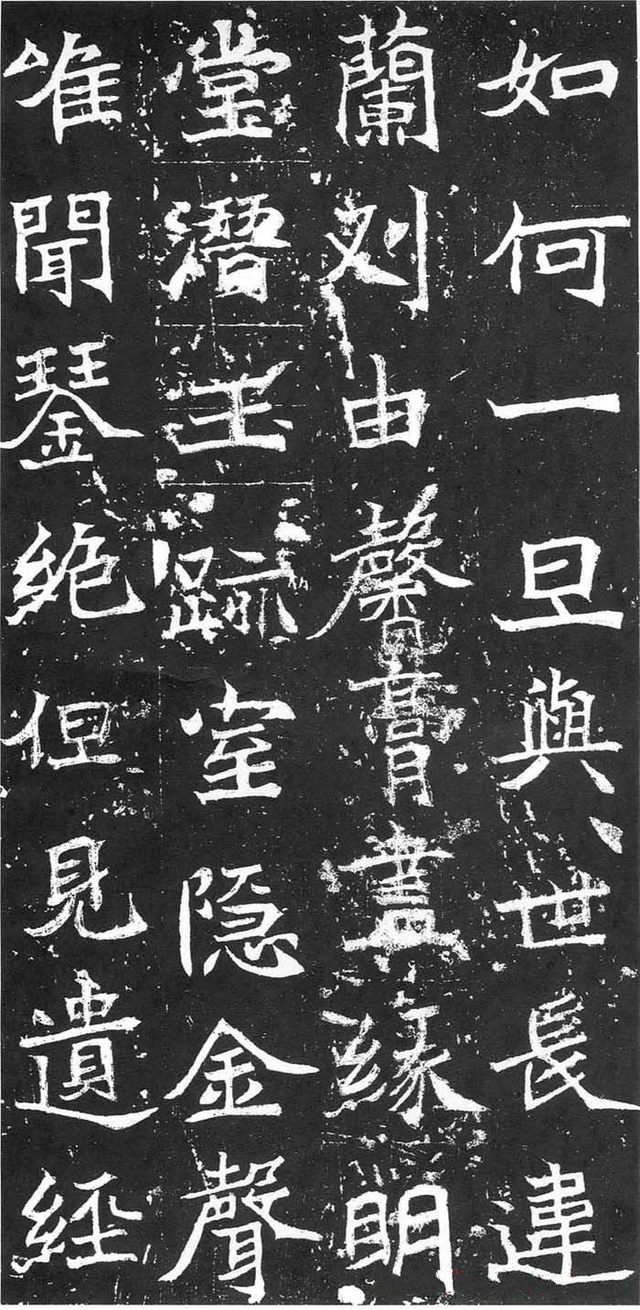 如何一旦與世長違
蘭刈由馨膏盡緣明
堂潛玉跡室隱金聲
唯聞琴絕但見遺經